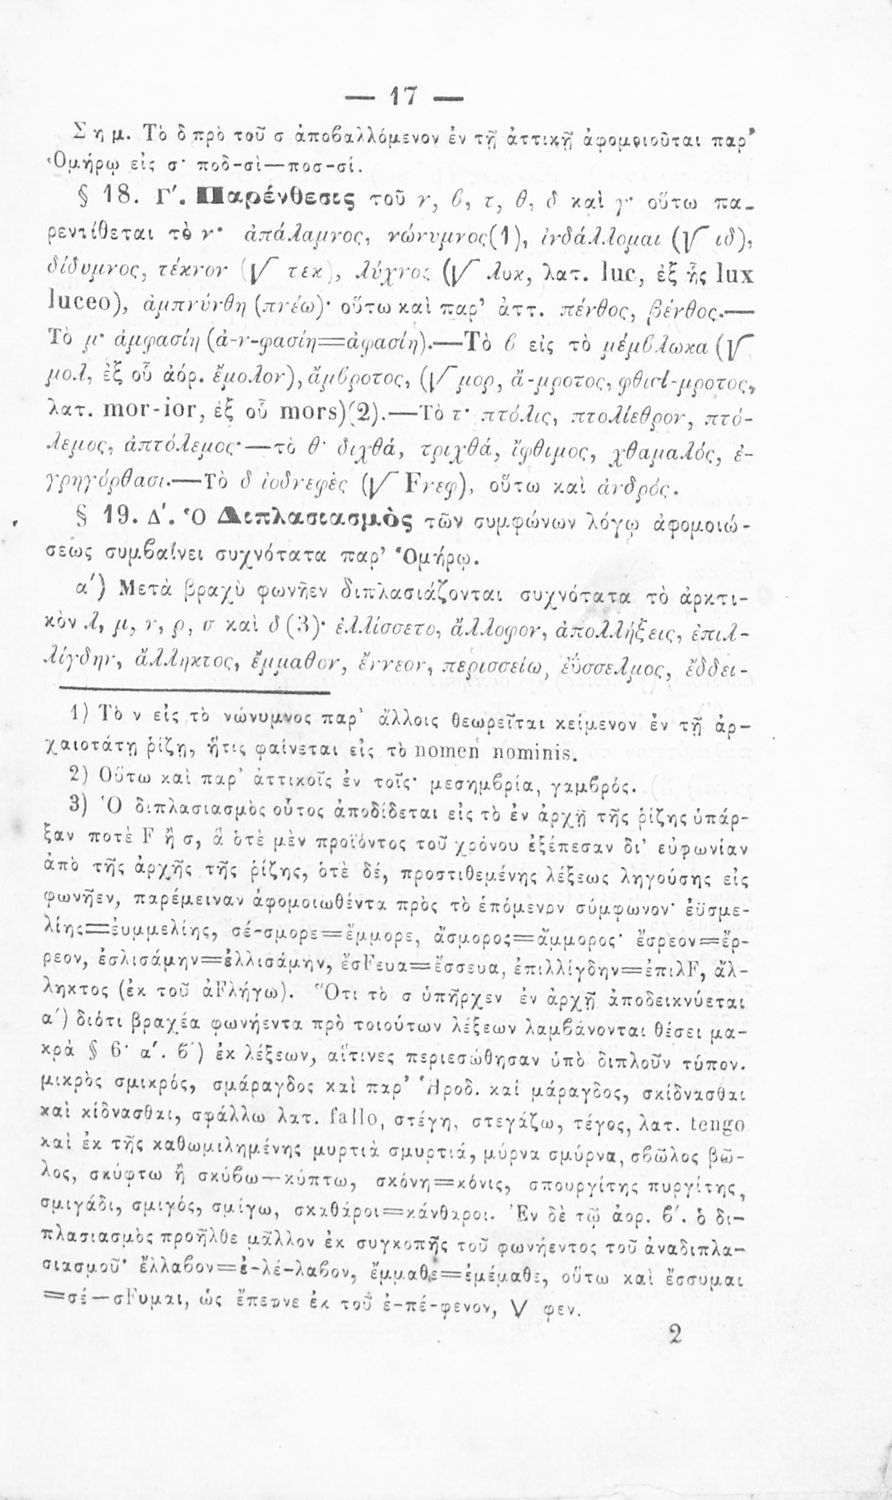 — 17 —
Σημ. Τὸ δ πρὸ τοῦ σ ἀποβαλλόμενον ἐν τῇ ἀττικῇ ἀφομοιοῦται παρ’
Ὁμήρῳ εἰς σ· ποδ-σὶ—ποσ-σί.
§ 18. Γ΄. Παρένθεσις τοῦ ν, β, τ, θ, δ καὶ γ· οὕτω πα-
ρεντίθεται τὸ ν· ἀπάλαμνος, νώνυμνος(1), ἰνδάλλομαι (√ ιδ),
δίδυμνος, τέκνον (√ τεκ), λύχνος (√ λυκ, λατ. luc, ἐξ ἧς lux
luceo), ἀμπνύνθη (πνέω)· οὕτω καὶ παρ’ ἀττ. πένθος, βένθος.—
Τὸ μ· ἀμφασίη (ἀ-ν-φασίη=ἀφασίη).—Τὸ β εἰς τὸ μέμβλωκα (√
μολ, ἐξ οὗ ἀόρ. ἔμολον), ἄμβροτος, (√ μορ, ἄ-μροτος, φθισί-μροτος,
λατ. mor-ior, ἐξ οὗ mors)(2).—Τὸ τ· πτόλις, πτολίεθρον, πτό-
λεμος, ἀπτόλεμος·—τὸ θ· διχθά, τριχθά, ἴφθιμος, χθαμαλός, ἐ-
γρηγόρθασι.—Τὸ δ ἰοδνεφὲς (√ Fνεφ), οὕτω καὶ ἀνδρός.
§ 19. Δ΄. Ὁ Διπλασιασμὸς τῶν συμφώνων λόγῳ ἀφομοιώ-
σεως συμβαίνει συχνότατα παρ’ Ὁμήρῳ.
α΄) Μετὰ βραχὺ φωνῆεν διπλασιάζονται συχνότατα τὸ ἀρκτι-
κὸν λ, μ, ν, ρ, σ καὶ δ (3)· ἐλλίσσετο, ἄλλοφον, ἀπολλήξεις, ἐπιλ-
λίγδην, ἄλληκτος, ἔμμαθον, ἔννεον, περισσείω, ἐΰσσελμος, ἔδδει-
1) Τὸ ν εἰς τὸ νώνυμνος παρ’ ἄλλοις θεωρεῖται κείμενον ἐν τῇ ἀρ-
χαιοτάτῃ ῥίζῃ, ἥτις φαίνεται εἰς τὸ nomen nominis.
2) Οὕτω καὶ παρ’ ἀττικοῖς ἐν τοῖς· μεσημβρία, γαμβρός.
3) Ὁ διπλασιασμὸς οὗτος ἀποδίδεται εἰς τὸ ἐν ἀρχῇ τῆς ῥίζης ὑπάρ-
ξαν ποτὲ F ἢ σ, ἃ ὁτὲ μὲν προϊόντος τοῦ χρόνου ἐξέπεσαν δι’ εὐφωνίαν
ἀπὸ τῆς ἀρχῆς τῆς ῥίζης, ὁτὲ δέ, προστιθεμένης λέξεως ληγούσης εἰς
φωνῆεν, παρέμειναν ἀφομοιωθέντα πρὸς τὸ ἑπόμενον σύμφωνον· ἐϋσμε-
λίης=ἐυμμελίης, σέ-σμορε=ἔμμορε, ἄσμορος=ἄμμορος· ἔσρεον=ἔρ-
ρεον, ἐσλισάμην=ἐλλισάμην, ἐσFευα=ἔσσευα, ἐπιλλίγδην=ἐπιλF, ἄλ-
ληκτος (ἐκ τοῦ ἀFλήγω). Ὅτι τὸ σ ὑπῆρχεν ἐν ἀρχῇ ἀποδεικνύεται
α΄) διότι βραχέα φωνήεντα πρὸ τοιούτων λέξεων λαμβάνονται θέσει μα-
κρὰ § 6· α΄. β΄) ἐκ λέξεων, αἵτινες περιεσώθησαν ὑπὸ διπλοῦν τύπον.
μικρὸς σμικρός, σμάραγδος καὶ παρ’ Ἡροδ. καὶ μάραγδος, σκίδνασθαι
καὶ κίδνασθαι, σφάλλω λατ. fallo, στέγη, στεγάζω, τέγος, λατ. tengo
καὶ ἐκ τῆς καθωμιλημένης μυρτιὰ σμυρτιά, μύρνα σμύρνα, σβῶλος βῶ-
λος, σκύφτω ἢ σκύβω—κύπτω, σκόνη=κόνις, σπουργίτης πυργίτης,
σμιγάδι, σμιγός, σμίγω, σκαθάροι=κάνθαροι. Ἐν δὲ τῷ ἀορ. β΄. ὁ δι-
πλασιασμὸς προῆλθε μᾶλλον ἐκ συγκοπῆς τοῦ φωνήεντος τοῦ ἀναδιπλα-
σιασμοῦ· ἔλλαβον=ἐ-λέ-λαβον, ἔμμαθε=ἐμέμαθε, οὕτω καὶ ἔσσυμαι
=σέ—σFυμαι, ὡς ἔπεφνε ἐκ τοῦ ἐ-πέ-φενον, √ φεν.
2